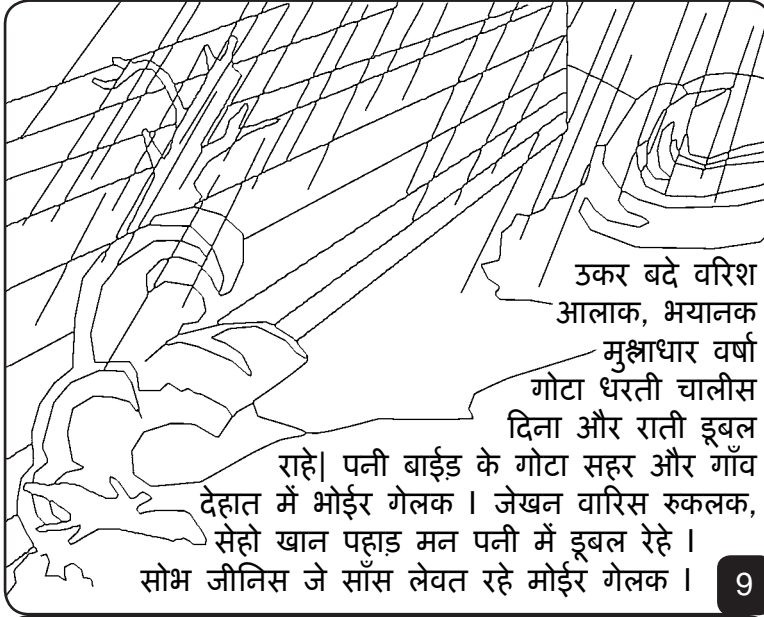 उकर बदे वरिश
आलाक, भयानक
मुश्लाधार वर्षा
गोटा धरती चालीस
दिना और राती डूबल
राहे| पनी बाईड़ के गोटा सहर और गाँव
देहात में भोईर गेलक ।  जेखन वारिस रुकलक,
सेहो खान पहाड़ मन पनी में डूबल रेहे ।
सोभ जीनिस जे साँस लेवत रहे मोईर गेलक ।
9